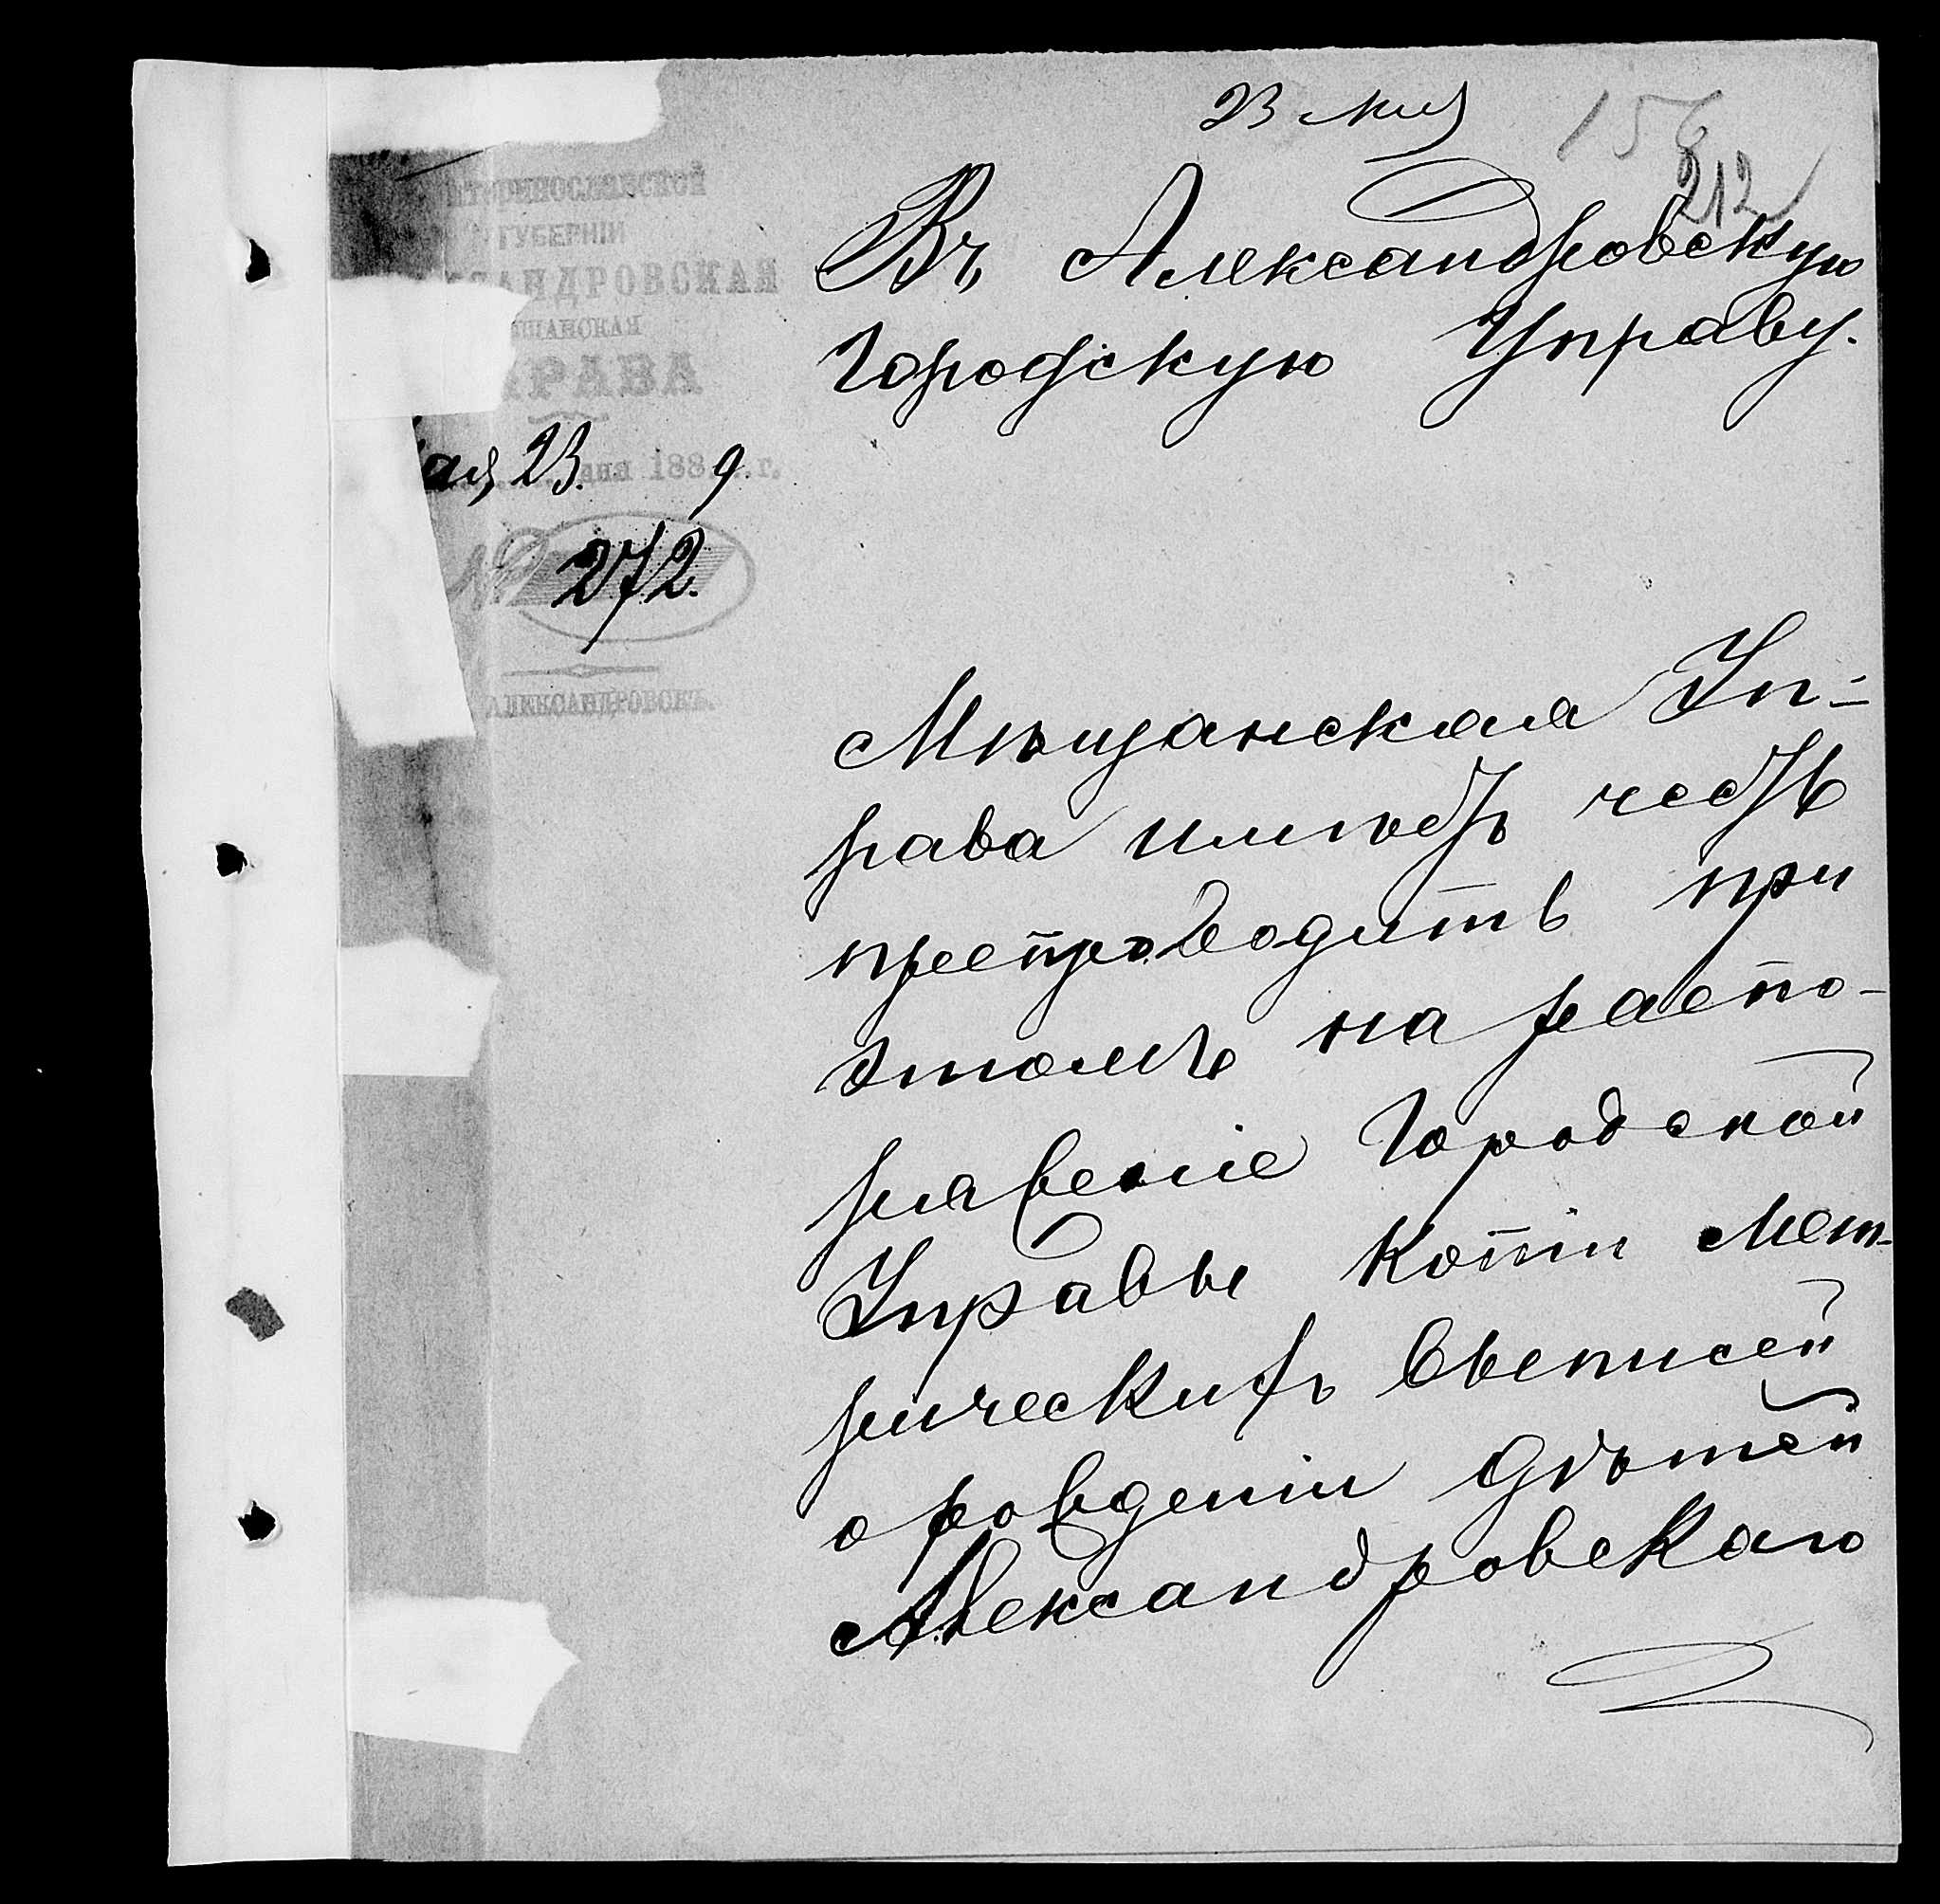 23 мая
156
212
ГУБЕРНІИ
АНДРОВСКАЯ
ЩАНСКАЯ
РАВА
ая 23. дня 1889 г.
№ 272.
АЛЕКСАНДРОВСКЪ.
Въ Александровскую
Городскую Управу.
Мѣщанская Уп=
рава имѣетъ честь
препроводить при
этомъ на распо-
ряженіе Городской
Управы копіи мет-
рическихъ выписей
о рожденіи дѣтей
Александровскаго